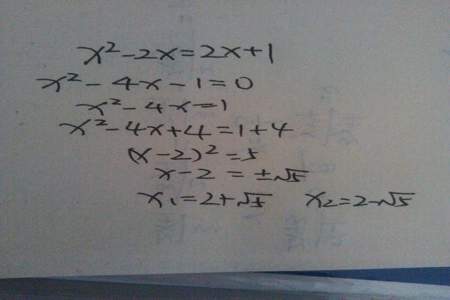 x²-2x=2x+1
x²-4x-1=0
x²-4x=1
x²-4x+4=1+4
(x-2)²=5
x-2=±√5
x₁=2+√5 x₂=2-√5